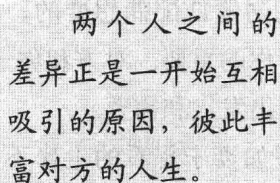 两个人之间的
差异正是一开始互相
吸引的原因，彼此丰
富对方的人生。